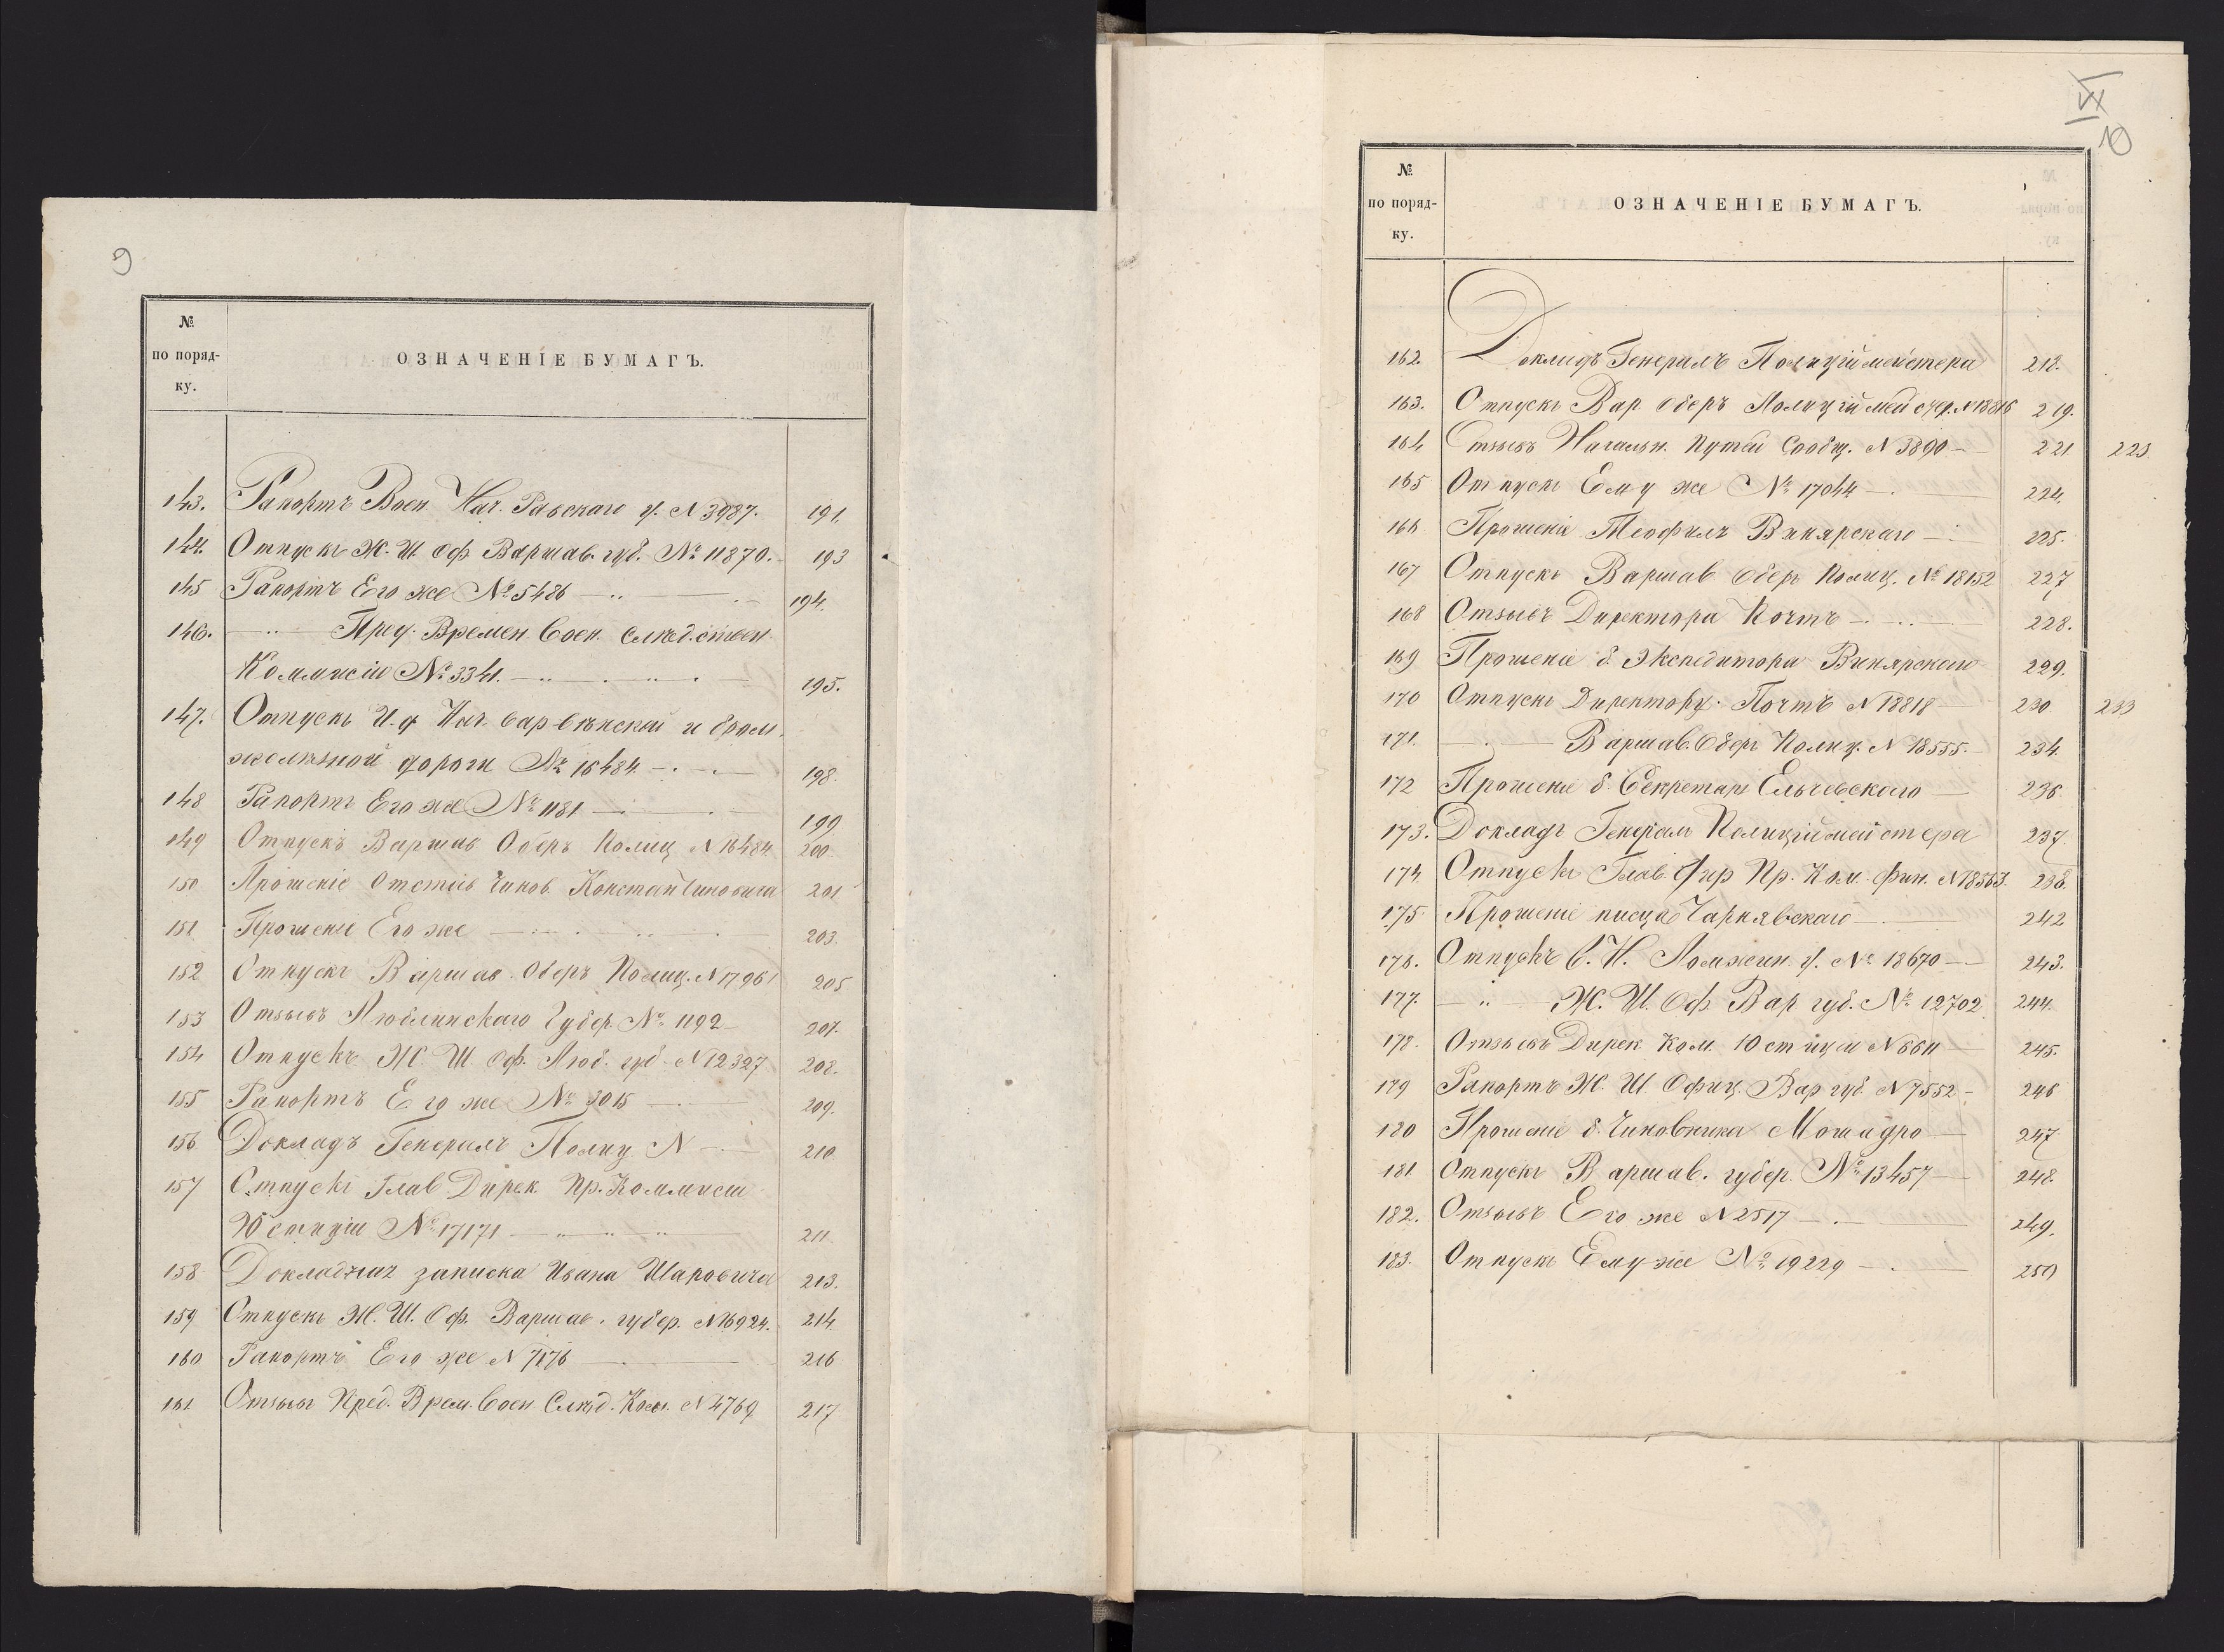 9
№
по поряд-
ку.
ОЗНАЧЕНІЕ БУМАГЪ.
143. Рапортъ Воен. Нач. Равскаго у. N 3987. 191.
144. Отпускъ Ж. Ш. Оф. Варшав. губ. № 11870. 193
145 Рапортъ Его же № 5486 194.
146. Пред. Времен. Воен. Слѣдствен.
Коммисіи № 3341. 195.
147. Отпускъ И. д. Нач. Вар-Вѣнской и Бром.
желѣзной дороги № 16484. 198.
148 Рапортъ Его же № 1181 199
149 Отпускъ Варшав Оберъ Полиц N 16484 200.
150 Прошеніе Отстав. Чинов. 201
151 Прошеніе Его же 203.
152 Отпускъ Варшав. Оберъ Полиц. N 17961 205
153 Отзывъ Люблинскаго Губер. № 1192 207.
154 Отпускъ Ж. Ш. Оф. Люб. губ. N 12327 208.
155 Рапортъ Его же № 3015 209.
156 Докладъ Генералъ Полиц. N 210
157 Отпускъ Глав Дирек. Пр. Коммисіи
Юстиціи № 17171 211
158 Докладная записка Ивана Шаповича 213.
159 Отпускъ Ж. Ш. Оф. Варшав. губер. N 16924. 214.
160 Рапортъ Его же N 7176 216
161 Отзывъ Пред. Врем. Воен. Слѣд. Ком. N 4769 217
VI
10
№
по поряд-
ку.
ОЗНАЧЕНІЕ БУМАГЪ.
162. Докладъ Генералъ Полиціймейстера 218.
163. Отпускъ Вар. Оберъ Полиціймейстер. N 18816 219.
164 Отзывъ Начальн. Путей Сообщ. N 3890 221 223.
165 Отпускъ Ему же № 17044 224.
166 Прошеніе Теофилъ Винярскаго 225.
167 Отпускъ Варшав Оберъ Полиц. № 18152 227
168 Отзывъ Директора Почтъ 228.
169 Прошеніе б. Экспедитора Винярскаго 229.
170 Отпускъ Директору Почтъ N 18818 230. 233
171. Варшав. Оберъ Полиц. N 18555. 234.
172 Прошеніе б. Секретаря Ельчевскаго 236
173. Докладъ Генералъ Полиціймейстера 237
174 Отпускъ Глав. Дир Пр. Ком. Фин. N 18563. 238.
175. Прошеніе писца Чарнявскаго 242
176. Отпускъ В. Н. Ломжин. у. № 18670 243.
177. Ж. Ш. Оф. Вар губ. № 12702 244.
178. Отзывъ Дирек Ком. Юстиціи N 6611 245.
179 Рапортъ Ж. Ш Офиц. Вар губ. N 7552 246
180 Прошеніе б. Чиновника 247
181 Отпускъ Варшав. губер. № 13457 248.
182. Отзывъ Его же N 2517 249.
183. Отпускъ Ему же № 19229 250